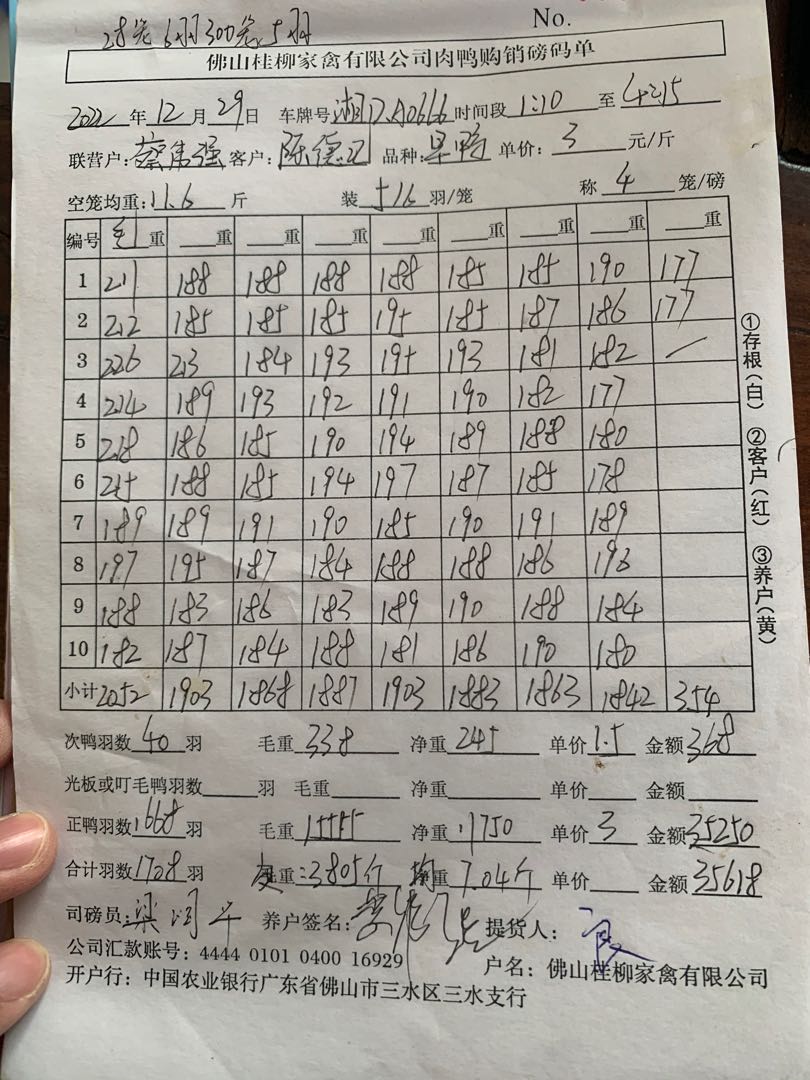 28笼6羽300笼5羽
No.
佛山桂柳家禽有限公司肉鸭购销磅码单
2022年12月29日 车牌号湘D.A0666时间段1:10至4:15
联营户:蔡伟强客户:陈德卫 品种: 单价:3元/斤
空笼均重:11.6斤 装 羽/笼 称4笼/磅
编号 毛重 重 重 重 重 重 重 重 重
1 211 188 188 188 188 185 185 190 177
2 212 185 185 185 195 185 187 186 177
3 226 213 184 193 195 193 181 182 /
4 214 189 193 192 191 190 182 177
5 218 186 185 190 194 189 188 180
6 215 188 185 194 197 187 185 178
7 189 189 191 190 185 190 191 189
8 197 195 187 184 188 188 186 193
9 188 183 186 183 189 190 188 184
10 182 187 184 188 181 186 190 180
小计 2052 1903 1868 1887 1903 1883 1863 1842 354
次鸭羽数40羽 毛重338 净重245 单价1.5 金额368
光板或叮毛鸭羽数 羽 毛重 净重 单价 金额
正鸭羽数1668羽 毛重15555 净重11750 单价3 金额35250
合计羽数1708羽 重:3805斤 均重7.04斤 单价 金额35618
司磅员: 养户签名: 提货人:
公司汇款账号:4444 0101 0400 16929 户名:佛山桂柳家禽有限公司
开户行:中国农业银行广东省佛山市三水区三水支行
①存根(白) ②客户(红) ③养户(黄)